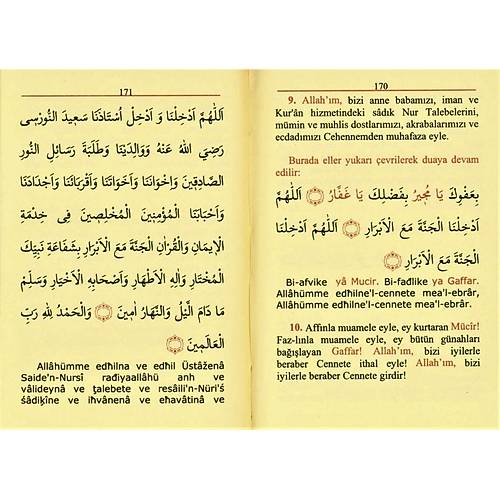 170
9. Allah'ım, bizi anne babamızı, iman ve
Kur'ân hizmetindeki sâdık Nur Talebelerini,
mümin ve muhlis dostlarımızı, akrabalarımızı ve
ecdadımızı Cehennemden muhafaza eyle.
Burada eller yukarı çevrilerek duaya devam
edilir:
بِعَفْوِكَ يَا مُجِيرُ بِفَضْلِكَ يَا غَفَّارُ اَللّٰهُمَّ
اَدْخِلْنَا الْجَنَّةَ مَعَ الْاَبْرَارِ اَللّٰهُمَّ اَدْخِلْنَا
الْجَنَّةَ مَعَ الْاَبْرَارِ
Bi-afvike yâ Mucir. Bi-fađlike ya Gaffar.
Allâhümme edhilne'l-cennete mea'l-ebrâr,
Allâhümme edhilne'l-cennete mea'l-ebrâr.
10. Affınla muamele eyle, ey kurtaran Mücîr!
Faz-lınla muamele eyle, ey bütün günahları
bağışlayan Gaffar! Allah'ım, bizi iyilerle
beraber Cennete ithal eyle! Allah'ım, bizi
iyilerle beraber Cennete girdir!
171
اَللّٰهُمَّ اَدْخِلْنَا وَ اَدْخِلْ اُسْتَاذَنَا سَعِيدَ النُّورْسِى
رَضِيَ اللّٰهُ عَنْهُ وَوَالِدَيْنَا وَطَلَبَةَ رَسَائِلِ النُّورِ
الصَّادِقِينَ وَاِخْوَانَنَا وَاَخَوَاتَنَا وَاَقْرِبَائَنَا وَاَجْدَادَنَا
وَاَحْبَابَنَا الْمُؤْمِنِينَ الْمُخْلِصِينَ فِى خِدْمَةِ
الْاِيمَانِ وَالْقُرْاٰنِ الْجَنَّةَ مَعَ الْاَبْرَارِ بِشَفَاعَةِ نَبِيِّكَ
الْمُخْتَارِ وَاٰلِهِ الْاَطْهَارِ وَاَصْحَابِهِ الْاَخْيَارِ وَسَلِّمْ
مَا دَامَ الَّيْلُ وَالنَّهَارُ اٰمِينَ وَالْحَمْدُ لِلّٰهِ رَبِّ
الْعَالَمِينَ
Allâhümme edhilna ve edhil Üstâženâ
Saide'n-Nursî rađiyaallâhü anh ve
vâlideynâ ve ţalebete ve resâili'n-Nûri's
śâdiķîne ve iħvânenâ ve eħavâtinâ ve